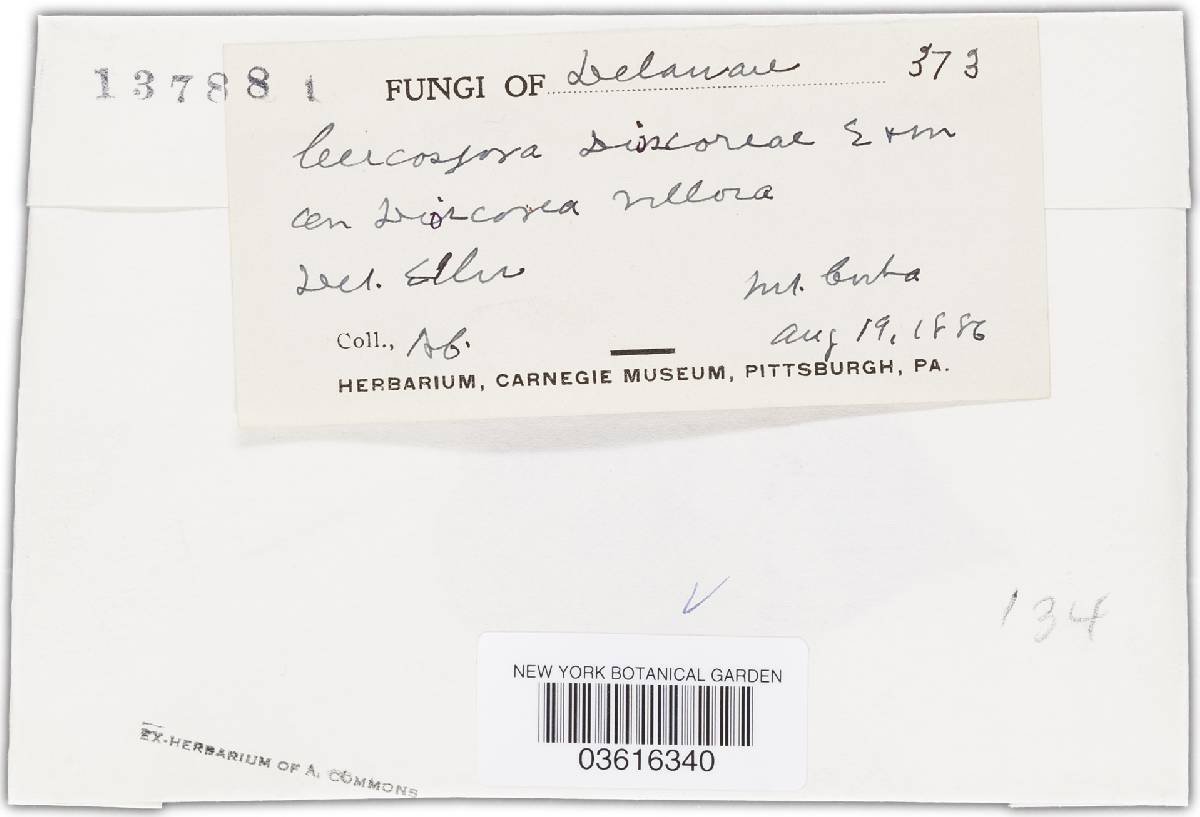 137881
FUNGI OF Delaware 373
Cercospora Dioscoreae E + M
on Dioscorea villosa
Det. Ellis
Mt. Cuba
Coll., AC.
Aug 19, 1886
HERBARIUM, CARNEGIE MUSEUM, PITTSBURGH, PA.
134
NEW YORK BOTANICAL GARDEN
03616340
EX-HERBARIUM OF A. COMMONS